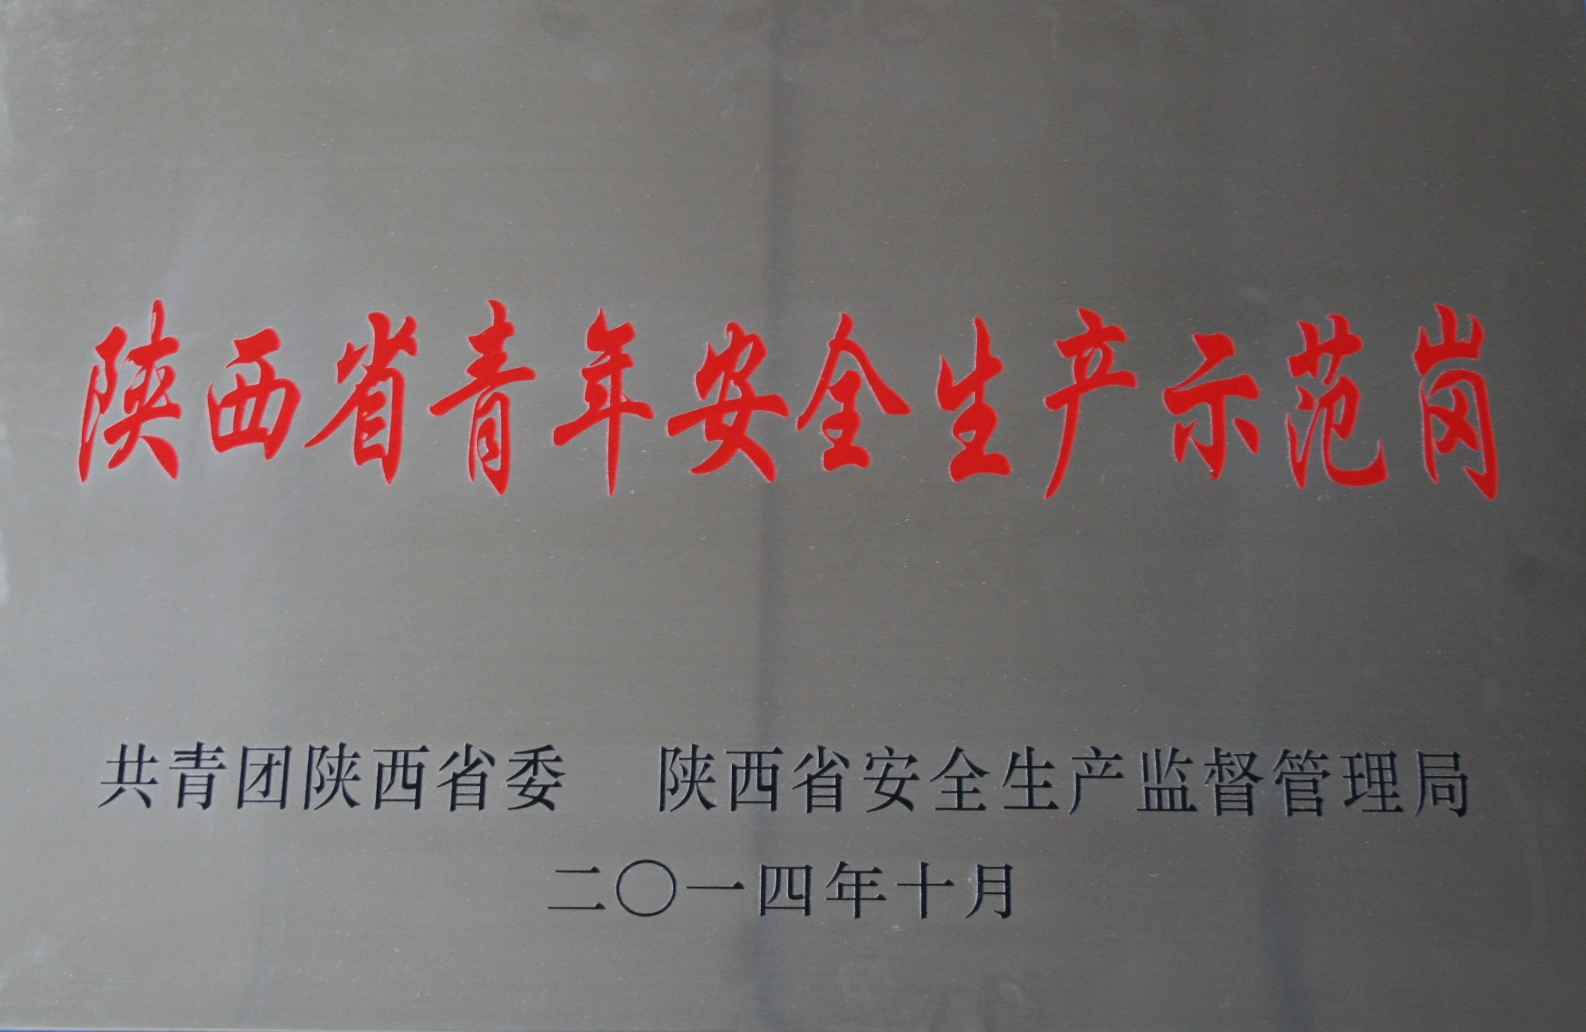 陕西省青年安全生产示范岗
共青团陕西省委 陕西省安全生产监督管理局
二〇一四年十月